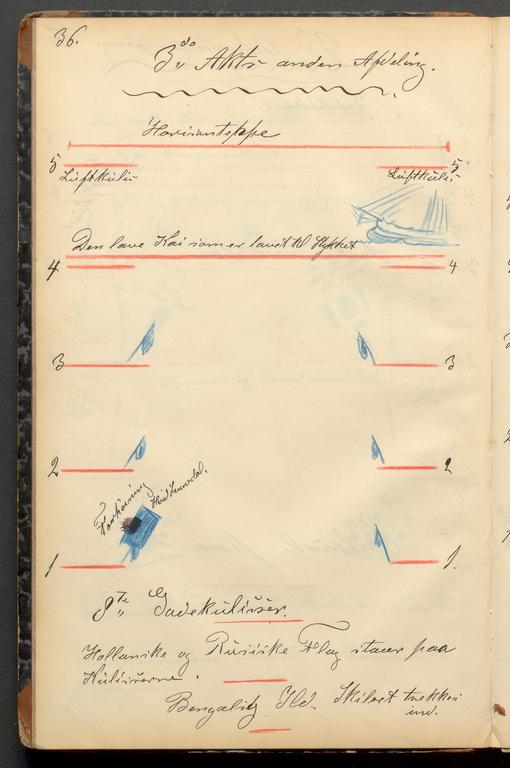 36.
3die Akts anden Afdeling.
Horisonteppe
5 5
Luftkulis Luftkulis
Den lave Kai som er lavet til Stykket
4 4
3 3
2 2
Forhöining
1 1.
8te Gadekulisser.
Hollanske og Rusiske Flag staaer paa
Kulisserne.
Bengalisk Ild. Skibet trekkes
ind.